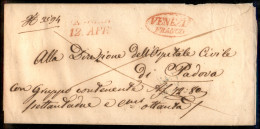 N. 3594
12. APR
VENEZIA
FRANCA
Alla Direzione dell'Ospitale Civile
di Padova
con Gruppo contenente
settantadue e ottanta